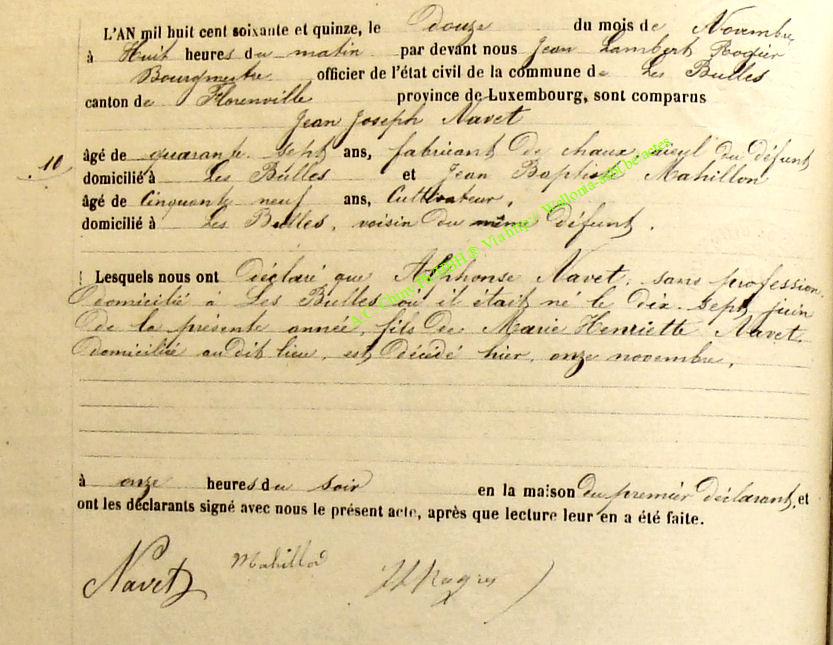 L'AN mil huit cent soixante et quinze, le Douze du mois de Novembre
à Huit heures du matin par devant nous Jean Lambert Rogier
Bourgmestre officier de l'état civil de la commune de Les Bulles
canton de Florenville province de Luxembourg, sont comparus
Jean Joseph Navet
10
âgé de quarante-sept ans, fabricant de chaux, aieul du défunt
domicilié à Les Bulles et Jean Baptiste Mahillon
âgé de Cinquante neuf ans, Cultivateur,
domicilié à Les Bulles, voisin du même défunt.
Lesquels nous ont Déclaré que Alphonse Navet, sans profession,
domicilié à Les Bulles où il était né le dix-sept juin
de la présente année, fils de Marie Henriette Navet,
domiciliée audit lieu, est décédé hier, onze novembre,
à onze heures du soir en la maison du premier déclarant, et
ont les déclarants signé avec nous le présent acte, après que lecture leur en a été faite.
Navet Mahillon